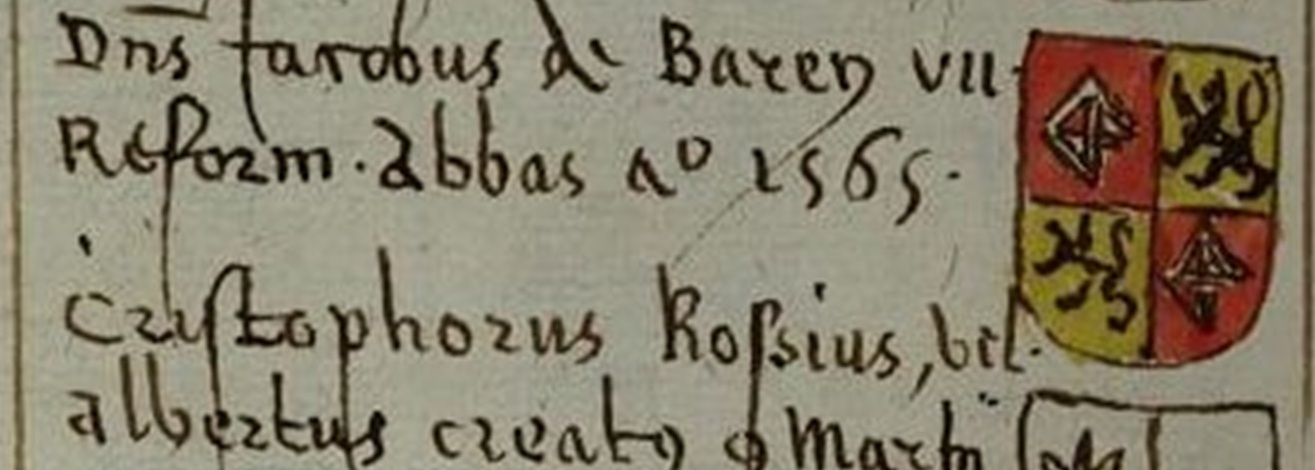 Dns Iacobus de Baren VII
Reform. abbas a° 1565.
Cristophorus Rossius, bel.
albertus creatus 9 Martii